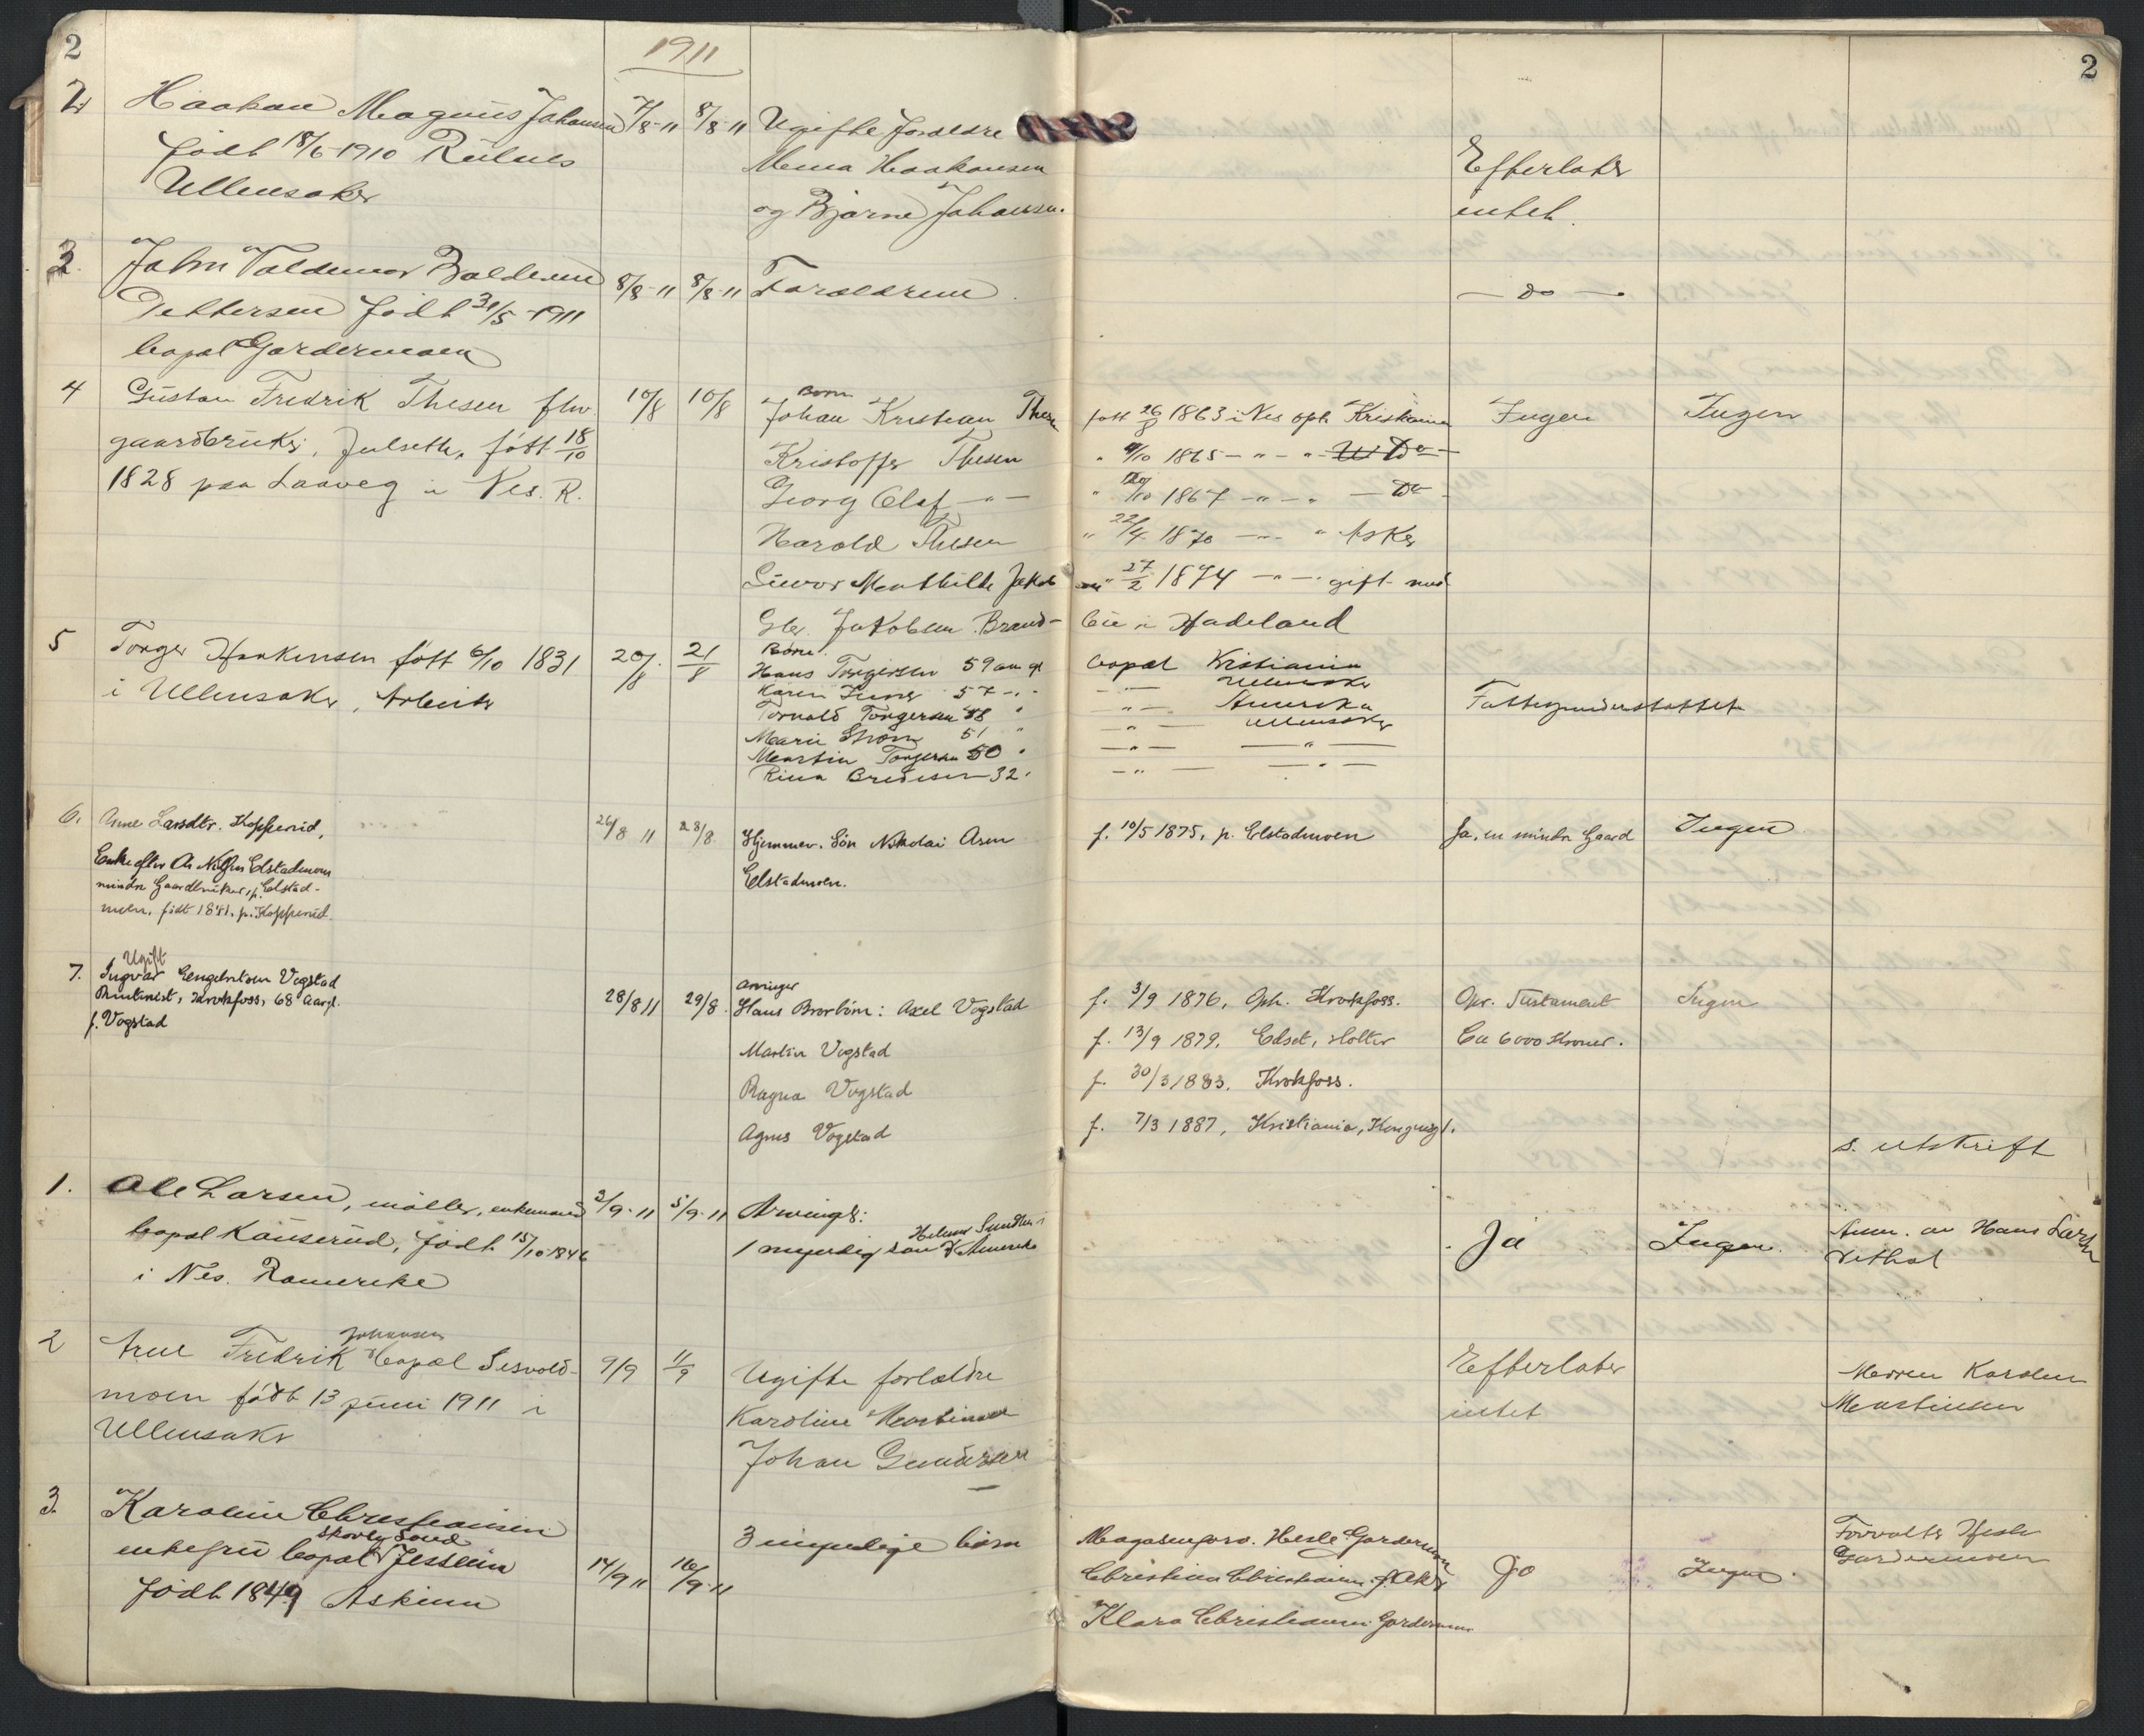 2
1911
2
2. Haakan Magnus Johansen 7/8-11 8/8-11 Ugifte Foreldre
født 18/6-1910
Ullensaker
Mema Haakansen
og Bjarne Johansen.
Efterlater
intet.
3. John Valdemar
Pettersen født 31/5-1911
bopæl Gardermoen
8/8-11 8/8-11 Foreldrene
— do —
4 Gustav Fredrik Thesen fhv
gaardbruker, Julseth, født 18/10
1828 paa Laaveg i Nes. R.
10/8 10/8
Børn
Johan Kristian Thesen født 26/8 1863 i Nes oph. Kristiania Ingen Ingen
Kristoffer Thesen " 9/10 1865 — " — " Do
Georg Olaf — " — " 1867 — " — " — Do
Harald Thesen " 22/4 1870 — " — " Asker
Mathilde Jakob " 27/2 1874 — " — gift med
Jakobsen Brand- bu i Hadeland
5 Torger Haakensen født 6/10 1831
i Ullensaker, Arbeider
20/8 21/8
Børn:
Hans Torgersen 59 aar gl. bopæl Kristiania
Karen 57 — " — Ullensaker
Torvald Torgersen — " — Amerika
Marie Strøm 51 " — " — Ullensaker
Martin Torgersen 50 " — " — — " —
Rina Bredesen 32 " — " — — " —
Fattigunderstøttet
6. Anne Larsdtr. Kopperud,
Enke efter Elstadmoen
mindre Gaardbruker, p. Elstad-
moen, født 1841. p. Kopperud.
26/8 11 28/8.
Hjemmev. Søn Nikolai Asen
Elstadmoen.
f. 10/5 1875, p. Elstadmoen Ja, en mindre Gaard Ingen
7. Ugift
Ingvar Engebretsen Vogstad
Krokfoss, 68 Aar gl.
f. Vogstad
28/8 11 29/8.
Arvinger
Hans Brorbørn: Axel Vogstad f. 3/9 1876, Oph. Krokfoss. Opr. Testament Ingen
Martin Vogstad f. 13/9 1879, Edset, Holter Ca 6000 Kroner.
Ragna Vogstad f. 30/3 1883, Krokfoss.
Agnes Vogstad f. 7/3 1887, Kristiania, Kongensgt.
s. utskrift
1. Ole Larsen, møller, enkemand 2/9-11 5/9-11 Arvinger:
bopæl Kauserud, født 15/10-1846
i Nes. Romerike
1 myndig søn i Amerika
Ja Ingen. Anm. av Hans Larsen
2 Arne Fredrik Johansen bopæl Sesvold-
moen født 13 juni 1911 i
Ullensaker
9/9 11/9 Ugifte forældre
Karoline Martinsen
Johan Gundersen
Efterlater
intet
Moren Karoline
Martinsen
3. Karoline Christiansen
enkefru bopæl Jessheim
født 1849 Askim
14/9 11 16/9-11
3 myndige børn
Magasinforv. Hesle Gardermoen
Christian Christiansen
Klara Christiansen Gardermoen
Ja Ingen.
Forvalter Hesle
Gardermoen